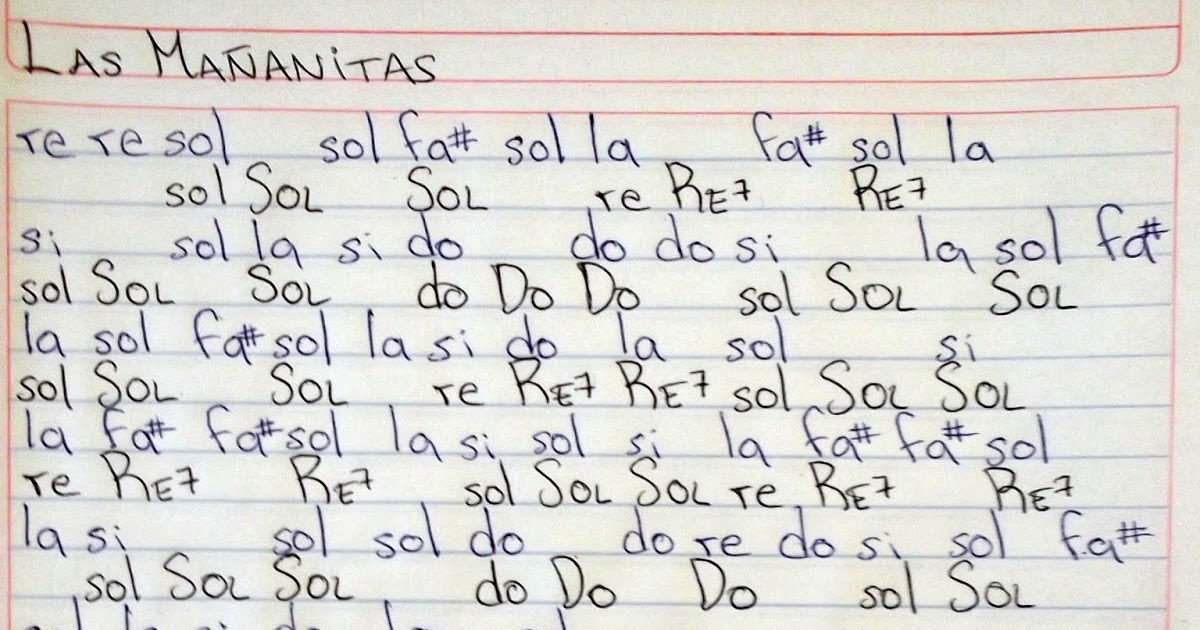 LAS MAÑANITAS
re re sol sol fa# sol la fa# sol la
sol SOL SOL re RE7 RE7
si sol la si do do do si la sol fa#
sol SOL SOL do DO DO sol SOL SOL
la sol fa# sol la si do la sol si
sol SOL SOL re RE7 RE7 sol SOL SOL
la fa# fa# sol la si sol si la fa# fa# sol
re RE7 RE7 sol SOL SOL re RE7 RE7
la si sol sol do do re do si sol fa#
sol SOL SOL do DO DO sol SOL